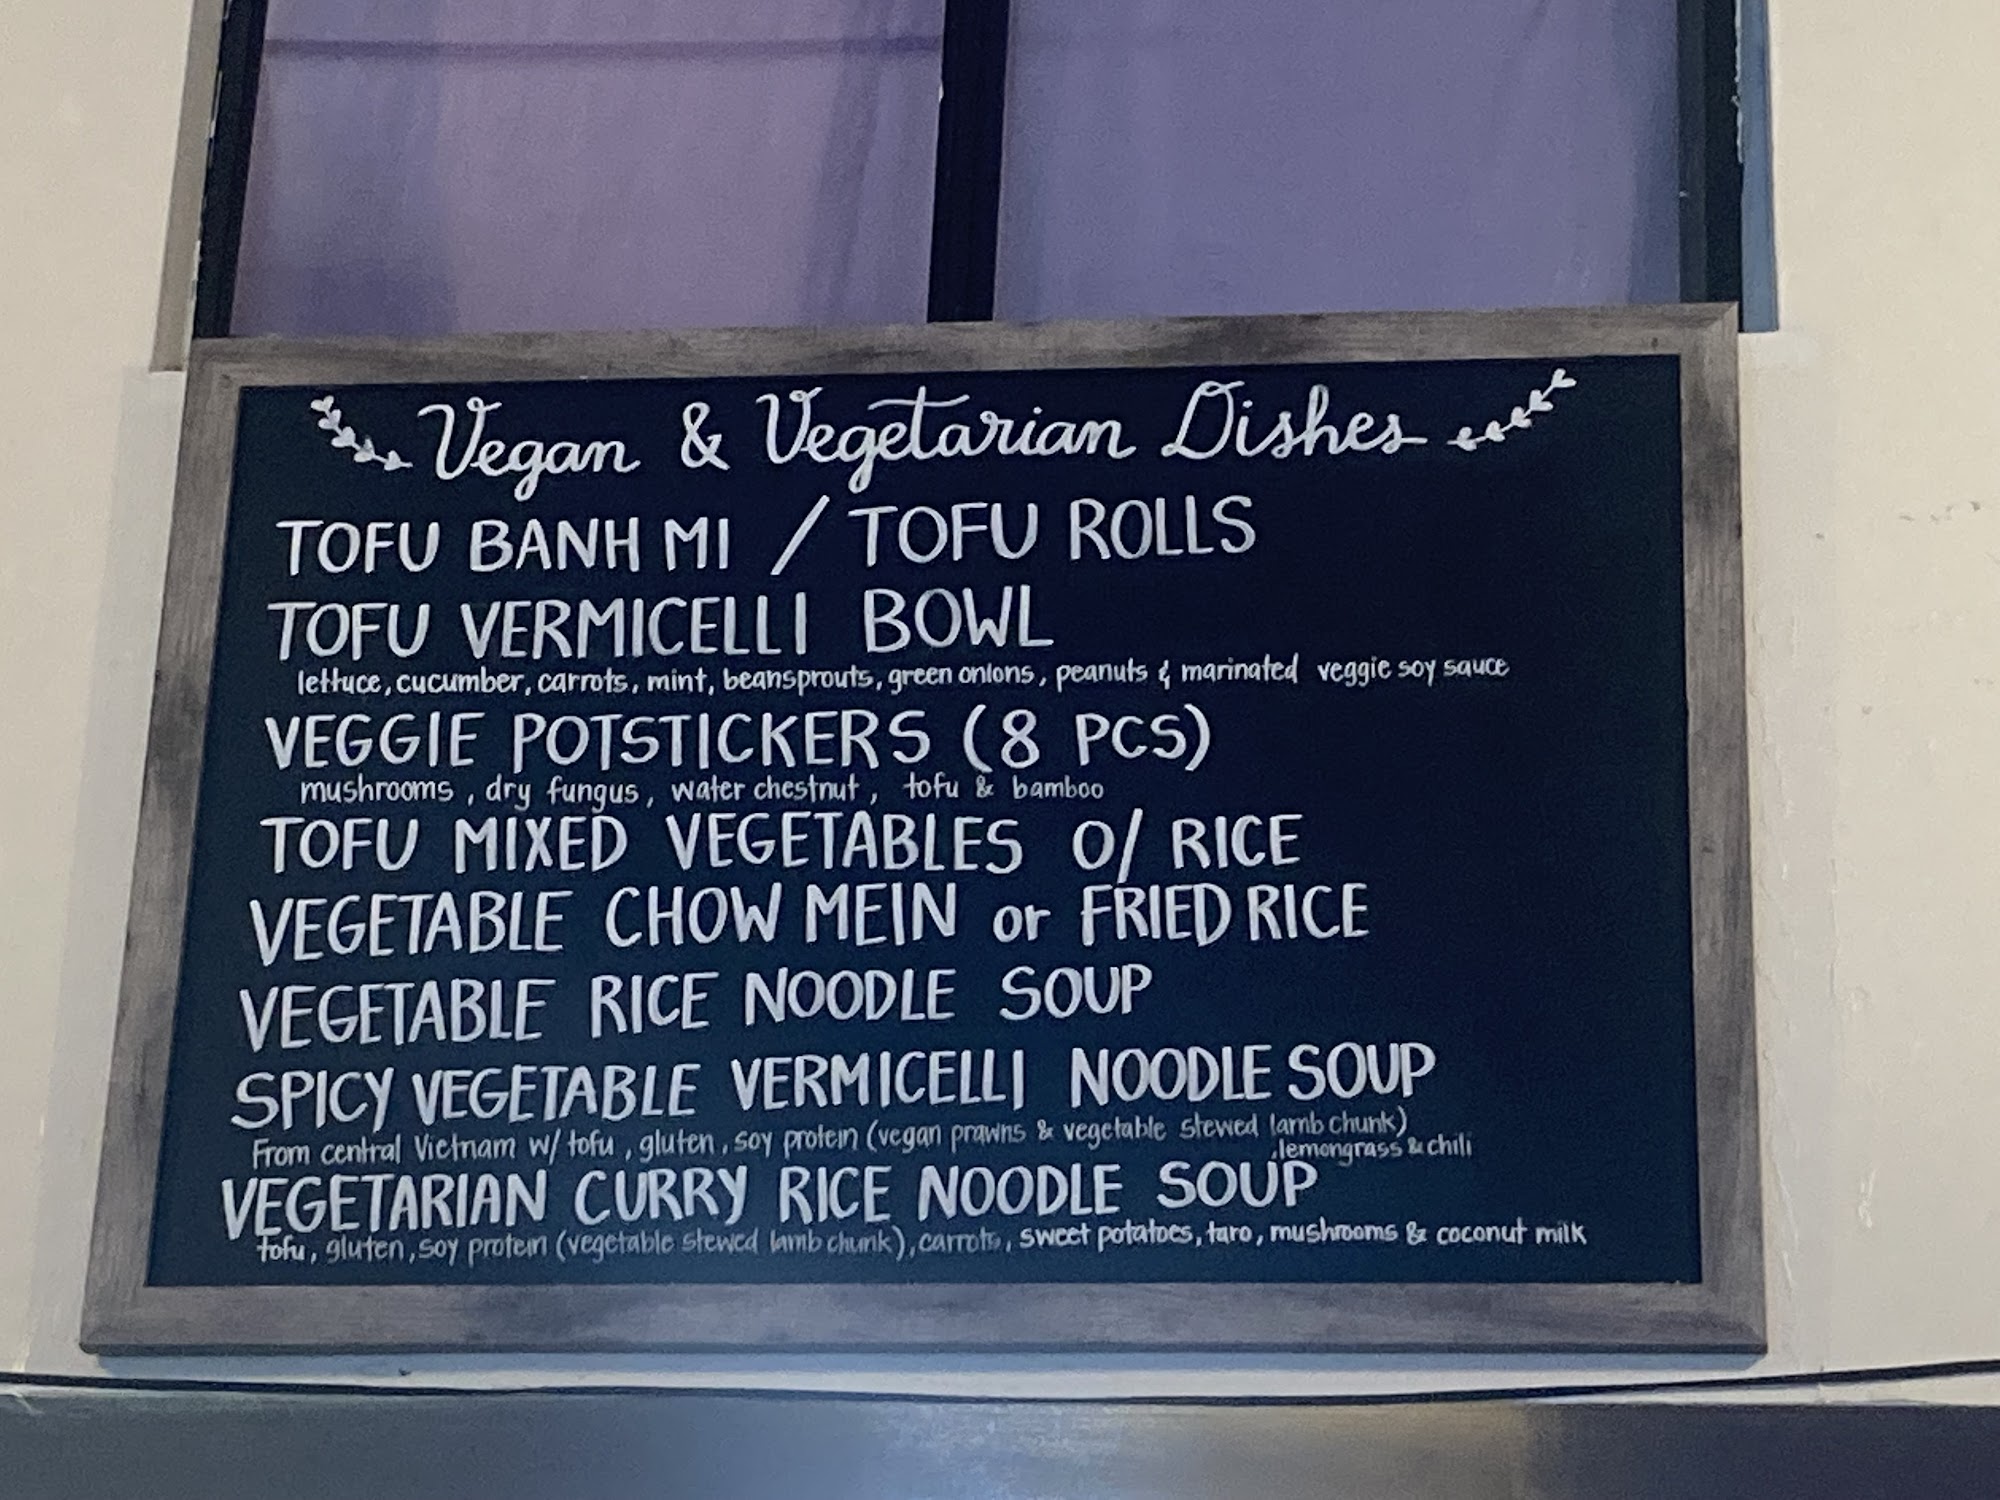 Vegan & Vegetarian Dishes
TOFU BANH MI / TOFU ROLLS
TOFU VERMICELLI BOWL
lettuce, cucumber, carrots, mint, beansprouts, green onions, peanuts & marinated veggie soy sauce
VEGGIE POTSTICKERS (8 PCS)
mushrooms, dry fungus, water chestnut, tofu & bamboo
TOFU MIXED VEGETABLES O/ RICE
VEGETABLE CHOW MEIN or FRIED RICE
VEGETABLE RICE NOODLE SOUP
SPICY VEGETABLE VERMICELLI NOODLE SOUP
From central Vietnam w/ tofu, gluten, soy protein (vegan prawns & vegetable stewed lamb chunk)
, lemongrass & chili
VEGETARIAN CURRY RICE NOODLE SOUP
tofu, gluten, soy protein (vegetable stewed lamb chunk), carrots, sweet potatoes, taro, mushrooms & coconut milk